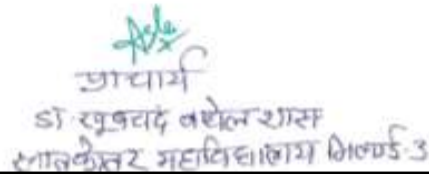 प्राचार्य
डॉ. खूबचंद बघेल शास.
स्नातकोत्तर महाविद्यालय भिलाई-3